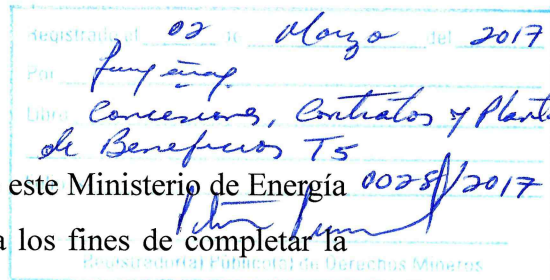 Registrado el 02 de Marzo del 2017
Por
Libro Concesiones, Contratos y Planta
de Beneficios T5
este Ministerio de Energía 0028 2017
a los fines de completar la
Registrador(a) Público(a) de Derechos Mineros